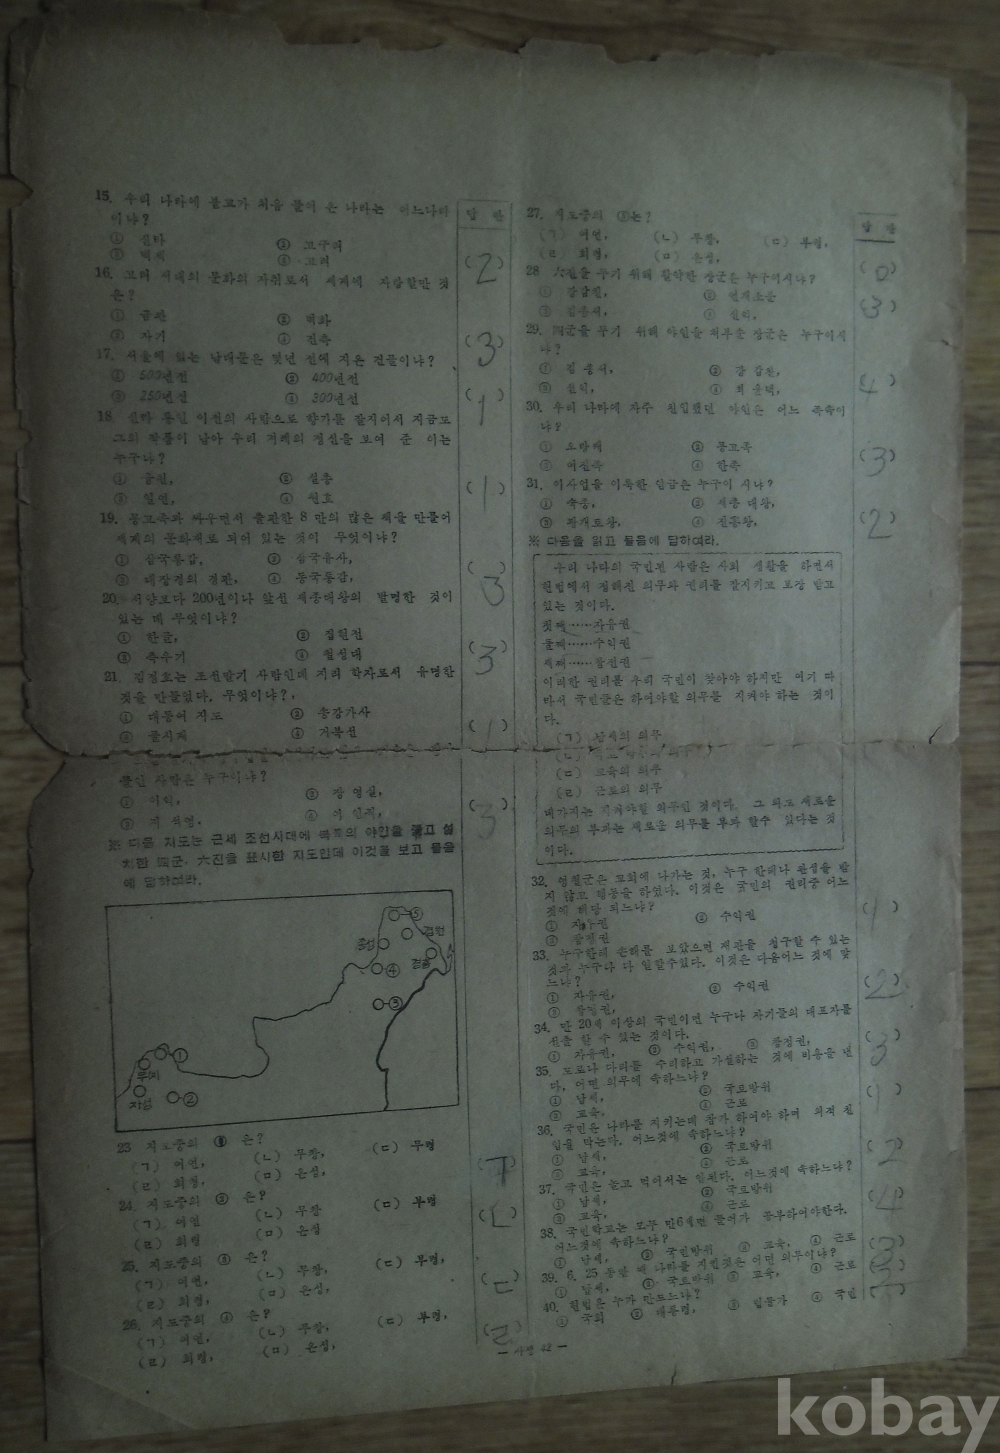 15. 우리 나라에 불교가 처음 들어 온 나라는 어느나라
이냐?
① 신라 ② 고구려
③ 백제 ④ 고려
(2)
16. 고려 시대의 문화의 자취로서 세계에 자랑할만 것
은?
① 금관 ② 벽화
③ 자기 ④ 건축
(3)
17. 서울에 있는 남대문은 몇년 전에 지은 건물이냐?
① 500년전 ② 400년전
③ 250년전 ④ 300년전
(1)
18 신라 통일 이전의 사람으로 향가를 잘지어서 지금도
그의 작품이 남아 우리 겨레의 정신을 보여 준 이는
누구냐?
② 설총
③ 일연, ④ 원효
(1)
19. 몽고족과 싸우면서 출판한 8 만의 많은 책을 만들어
세계의 문화재로 되어 있는 것이 무엇이냐?
① 삼국통감, ② 삼국유사,
③ 대장경의 경판, ④ 동국통감,
(3)
20. 서양보다 200년이나 앞선 세종대왕의 발명한 것이
있는 데 무엇이냐?
① 한글, ② 집현전
③ 측우기 ④ 첨성대
(3)
21. 김정호는 조선말기 사람인데 지리 학자로서 유명한
것을 만들었다. 무엇이냐?,
① 대동여 지도 ② 송강가사
③ 물시계 ④ 거북선
(1)
사람은 누구이냐?
① 이익, ② 장 영실,
③ 지 석영,
(3)
※ 다음 지도는 근세 조선시대에 북쪽의 야인을 설
치한 四군. 六진을 표시한 지도인데 이것을 보고 물음
에 답하여라.
⑤
종성
경원
④
③
①
자성
②
23 지도중의 ① 은?
(ㄱ) 여연, (ㄴ) 무창, (ㄷ) 무령
(ㄹ) 회령, (ㅁ) 온성,
(ㄱ)
24. 지도중의 ② 은?
(ㄱ) 여연 (ㄴ) 무창 (ㄷ) 무령
(ㄹ) 회령 (ㅁ) 온성
(ㄷ)
25. 지도중의 ③ 은?
(ㄱ) 여연, (ㄴ) 무창, (ㄷ) 무령,
(ㄹ) 회령, (ㅁ) 온성,
(ㄷ)
26. 지도중의 ④ 은?
(ㄱ) 여연, (ㄴ) 무창, (ㄷ) 무령,
(ㄹ) 회령, (ㅁ) 온성,
(ㄹ)
답 란
27. 지도중의 ⑤는?
(ㄱ) 여연, (ㄴ) 무창, (ㄷ) 무령,
(ㄹ) 회령, (ㅁ) 온성,
28 六진을 두기 위해 활약한 장군은 누구이시냐?
① 강감찬, ② 연개소문
③ 김종서, ④ 신익,
(3)
29. 四군을 두기 위해 야인을 쳐부순 장군은 누구이시
냐?
① 김 종서, ② 강 감찬,
③ 신익, ④ 최 윤덕,
(4)
30. 우리 나라에 자주 침입했던 야인은 어느 족속이
냐?
① 오랑캐 ② 몽고족
③ 여진족 ④ 한족
(3)
31. 이사업을 이룩한 임금은 누구이 시냐?
① 숙종, ② 세종 대왕,
③ 광개토왕, ④ 진흥왕,
(2)
※ 다음을 읽고 물음에 답하여라.
우리 나라의 국민된 사람은 사회 생활을 하면서
헌법에서 정해진 의무와 권리를 잘지키고 보장 받고
있는 것이다.
첫째……자유권
둘째……수익권
세째……참정권
이러한 권리를 우리 국민이 찾아야 하지만 여기 따
라서 국민들은 하여야할 의무를 지켜야 하는 것이
다.
(ㄱ) 납세의 의무
(ㄷ) 교육의 의무
(ㄹ) 근로의 의무
네가지는 지켜야될 의무인 것이다. 그 외도 새로운
의무의 부과는 새로운 의무를 부과 할수 있다는 것
이다.
32. 영철군은 교회에 나가는 것, 누구 한테나 간섭을 받
지 않고 행동을 하였다. 이것은 국민의 권리중 어느
것에 해당 되느냐?
① 자유권 ② 수익권
③ 참정권
(1)
33. 누구한테 손해를 보았으면 재판을 청구할 수 있는
것과 누구나 다 일할수있다. 이것은 다음어느 것에 맞
느냐?
① 자유권, ② 수익권
③ 참정권,
(2)
34. 만 20세 이상의 국민이면 누구나 자기들의 대표자를
선출 할 수 있는 것이다.
① 자유권, ② 수익권, ③ 참정권,
(3)
35. 도로나 다리를 수리하고 가설하는 것에 비용을 낸
다, 어떤 의무에 속하느냐?
① 납세, ② 국토방위
③ 교육, ④ 근로
(1)
36. 국민은 나라를 지키는데 참가 하여야 하며 외적 침
입을 막는다. 어느것에 속하느냐?
① 납세, ② 국토방위
③ 교육, ④ 근로
(2)
37. 국민은 놀고 먹어서는 안된다. 어느것에 속하느냐?
① 납세, ② 국토방위
③ 교육, ④ 근로
(4)
38. 국민학교는 모두 만6세면 들어가 공부하여야한다.
어느것에 속하느냐?
① 납세, ② 국민방위 ③ 교육, ④ 근로
(3)
39. 6. 25 동란 때 나라를 지킨것은 어떤 의무이냐?
① 납세, ② 국토방위 ③ 교육, ④ 근로
40. 헌법은 누가 만드느냐?
① 국회 ② 대통령, ③ 법률가 ④ 국민
— 사생 42 —
kobay